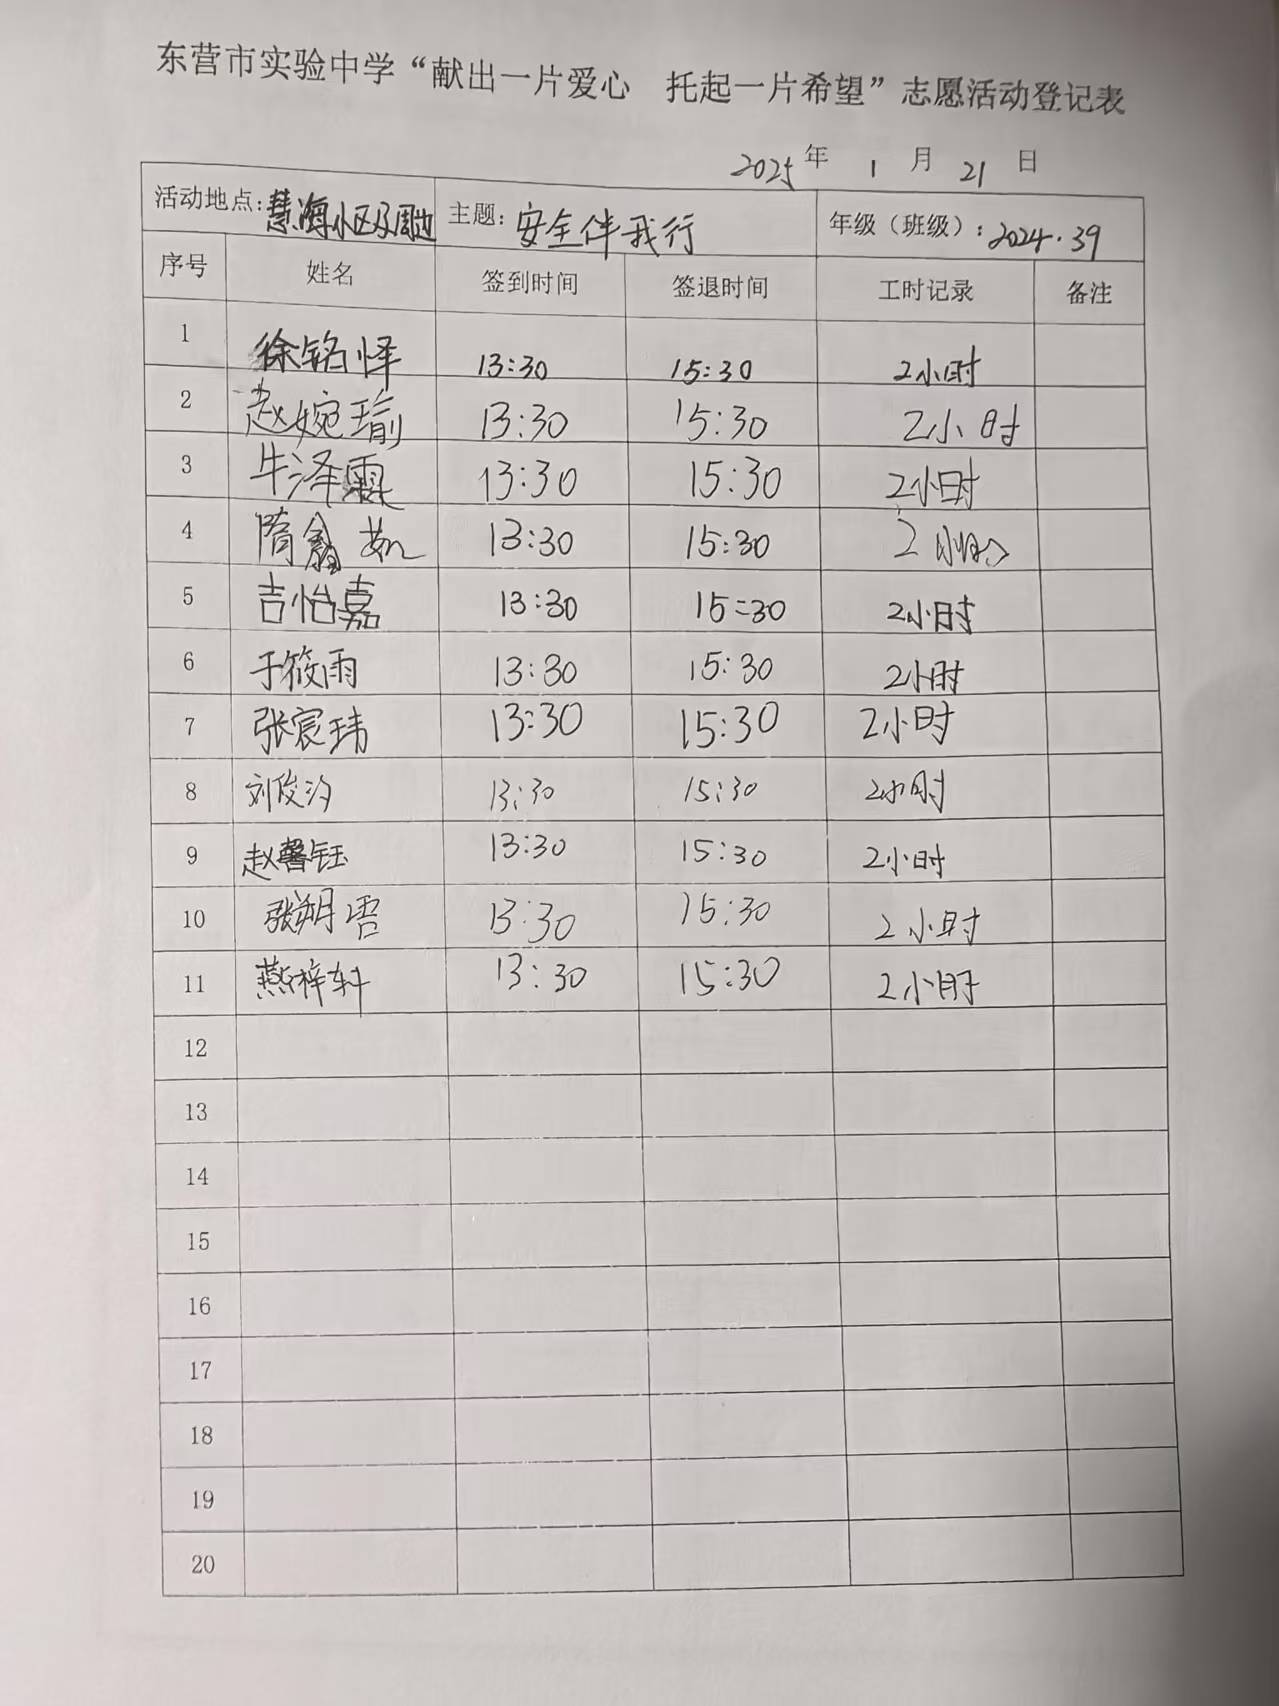 东营市实验中学“献出一片爱心 托起一片希望”志愿活动登记表
2025年 1月21日
活动地点:慧海小区及周边 主题:安全伴我行 年级（班级）:2024.39
序号 姓名 签到时间 签退时间 工时记录 备注
1 徐铭怿 13:30 15:30 2小时
2 赵婉瑜 13:30 15:30 2小时
3 牛泽霖 13:30 15:30 2小时
4 隋鑫茹 13:30 15:30 2小时
5 吉怡嘉 13:30 15:30 2小时
6 于筱雨 13:30 15:30 2小时
7 张宸玮 13:30 15:30 2小时
8 刘俊汐 13:30 15:30 2小时
9 赵馨钰 13:30 15:30 2小时
10 张朔语 13:30 15:30 2小时
11 燕梓轩 13:30 15:30 2小时
12
13
14
15
16
17
18
19
20